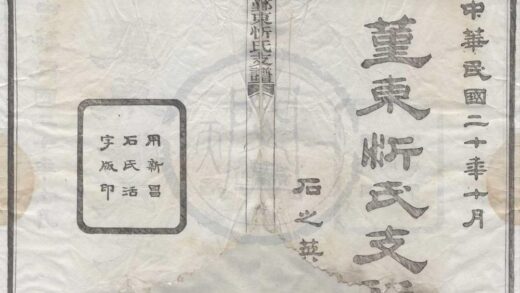 中華民國二十年十月
堇東忻氏支
石之英
東忻氏支譜
用新昌
石氏活
字版印